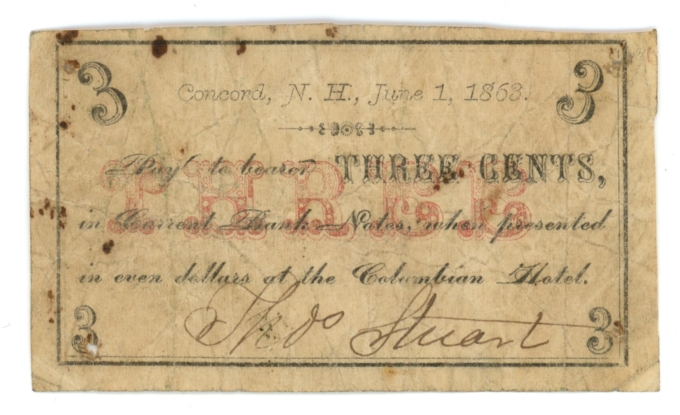 3 3
Concord, N. H., June 1, 1863.
Pay to bearer THREE CENTS,
THREE
in Current Bank-Notes, when presented
in even dollars at the Columbian Hotel.
3 Thos Stuart 3